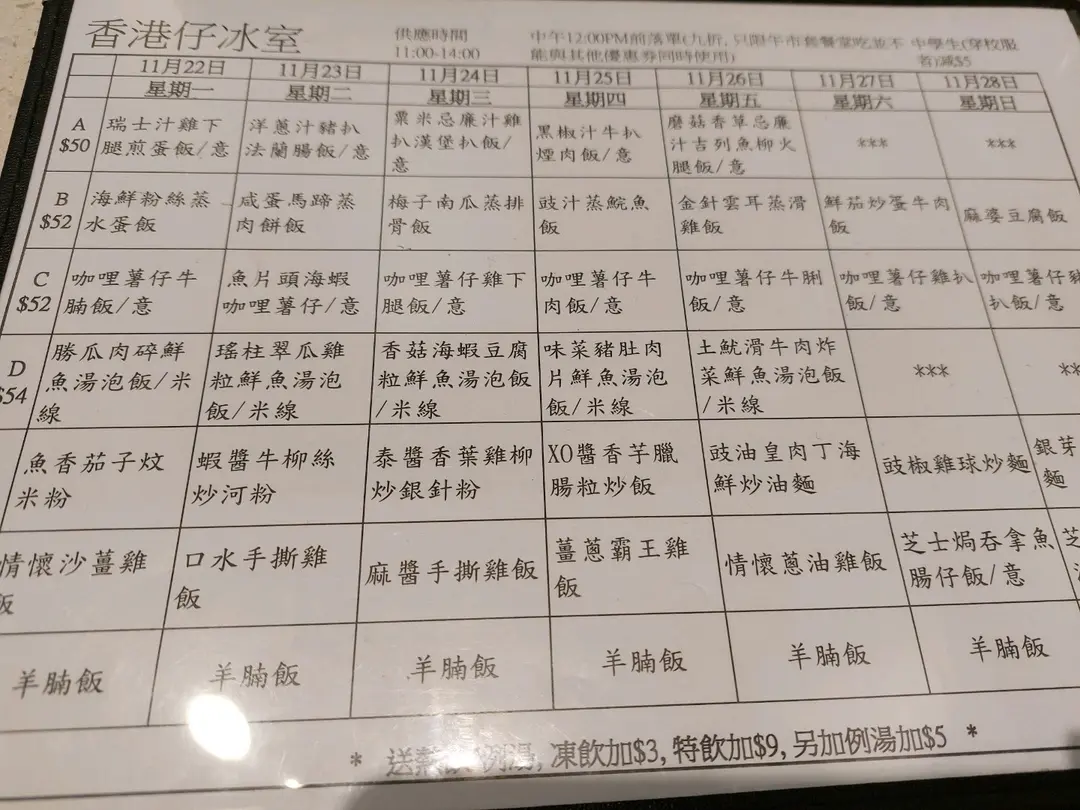 香港仔冰室
供應時間
11:00-14:00
中午12:00PM前落單(九折, 只限午市套餐堂吃並不
能與其他優惠券同時使用)
中學生(穿校服
者)減$5
11月22日 11月23日 11月24日 11月25日 11月26日 11月27日 11月28日
星期一 星期二 星期三 星期四 星期五 星期六 星期日
A
$50
瑞士汁雞下
腿煎蛋飯/意
洋蔥汁豬扒
法蘭腸飯/意
粟米忌廉汁雞
扒漢堡扒飯/
意
黑椒汁牛扒
煙肉飯/意
磨菇香草忌廉
汁吉列魚柳火
腿飯/意
***
***
B
$52
海鮮粉絲蒸
水蛋飯
咸蛋馬蹄蒸
肉餅飯
梅子南瓜蒸排
骨飯
豉汁蒸鯇魚
飯
金針雲耳蒸滑
雞飯
鮮茄炒蛋牛肉
飯
麻婆豆腐飯
C
$52
咖哩薯仔牛
腩飯/意
魚片頭海蝦
咖哩薯仔/意
咖哩薯仔雞下
腿飯/意
咖哩薯仔牛
肉飯/意
咖哩薯仔牛脷
飯/意
咖哩薯仔雞扒
飯/意
咖哩薯仔豬
扒飯/意
D
$54
勝瓜肉碎鮮
魚湯泡飯/米
線
瑤柱翠瓜雞
粒鮮魚湯泡
飯/米線
香菇海蝦豆腐
粒鮮魚湯泡飯
/米線
味菜豬肚肉
片鮮魚湯泡
飯/米線
土魷滑牛肉炸
菜鮮魚湯泡飯
/米線
***
**
魚香茄子炆
米粉
蝦醬牛柳絲
炒河粉
泰醬香葉雞柳
炒銀針粉
XO醬香芋臘
腸粒炒飯
豉油皇肉丁海
鮮炒油麵
豉椒雞球炒麵
銀芽
麵
情懷沙薑雞
飯
口水手撕雞
飯
麻醬手撕雞飯
薑蔥霸王雞
飯
情懷蔥油雞飯
芝士焗吞拿魚
腸仔飯/意
芝
羊腩飯
羊腩飯
羊腩飯
羊腩飯
羊腩飯
羊腩飯
* 送熱 例湯, 凍飲加$3, 特飲加$9, 另加例湯加$5 *